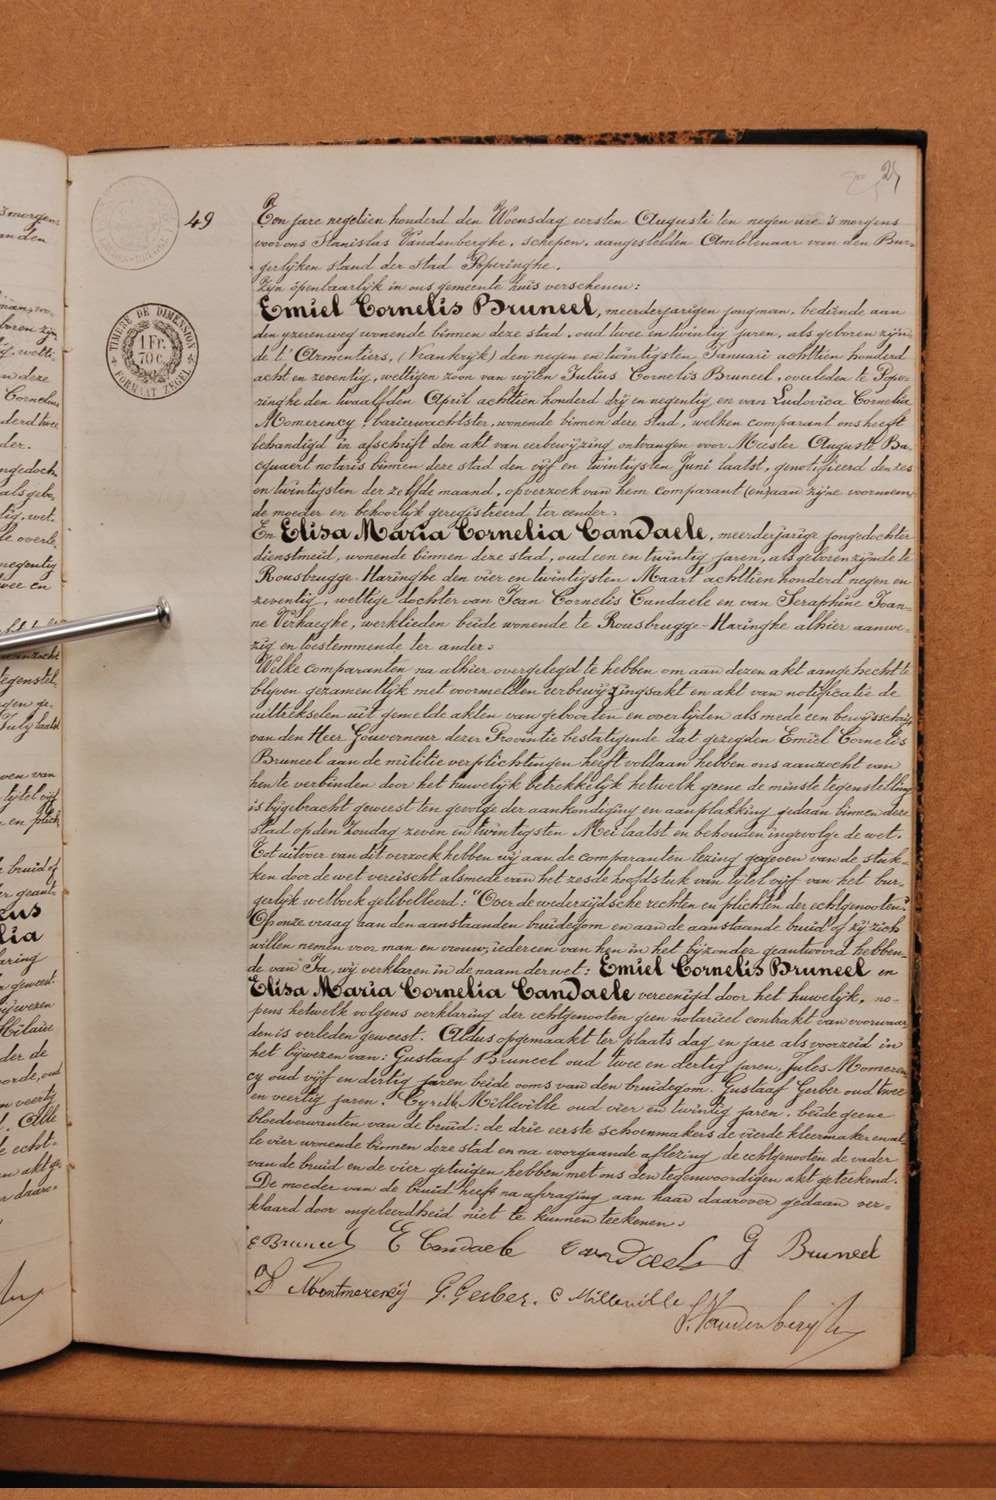 27
49
Ten jare negetien honderd den Woensdag eersten Augusti ten negen ure 's morgens
voor ons Stanislas Vandenberghe, schepen, aangestelden Ambtenaar van den Bur-
gerlijken stand der stad Poperinghe.
Zijn openbaarlijk in ons gemeente huis verschenen:
Emiel Cornelis Bruneel, meerderjarigen jongman, bediende aan
den yzeren weg wonende binnen deze stad, oud twee en twintig jaren, als geboren zijn-
de t' Armentiers, (Vrankrijk) den negen en twintigsten Januari achttien honderd
acht en zeventig, wettigen zoon van wijlen Julius Cornelis Bruneel, overleden te Pope-
ringhe den twaalfden April achttien honderd drij en negentig en van Ludovica Cornelia
Momerency, barierwachtster, wonende binnen deze stad, welken comparant ons heeft
behandigd in afschrift den akt van eerbewijzing ontvangen voor Meester Auguste Ba-
cquaert notaris binnen deze stad den vijf en twintigsten Juni laatst, genotifieerd den zes
en twintigsten der zelfde maand, op verzoek van hem comparant (en) aan zijne voornoem-
de moeder en behoorlijk geregistreerd ter eender.
En Elisa Maria Cornelia Candaele, meerderjarige jongedochter
dienstmeid, wonende binnen deze stad, oud een en twintig jaren, als geboren zijnde te
Rousbrugge-Haringhe den vier en twintigsten Maart achttien honderd negen en
zeventig, wettige dochter van Jean Cornelis Candaele en van Seraphine Joan-
ne Verhaeghe, werklieden beide wonende te Rousbrugge-Haringhe alhier aanwe-
zig en toestemmende ter ander.
Welke comparanten na alhier overgelegd te hebben om aan dezen akt aangehecht te
blyven gezamentlijk met voormelden eerbewijzingsakt en akt van notificatie de
uittrekselen uit gemelde akten van geboorten en overlijden als mede een bewijsschrift
van den Heer Gouverneur dezer Provintie bestatigende dat gezegden Emiel Cornelis
Bruneel aan de militie verplichtingen heeft voldaan hebben ons aanzocht van
hen te verbinden door het huwelijk betrekkelijk hetwelk geene de minste tegenstelling
is bijgebracht geweest ten gevolge der aankondiging en aanplakking gedaan binnen deze
stad op den Zondag zeven en twintigsten Mei laatst en behouden ingevolge de wet.
Tot uitvoer van dit verzoek hebben wij aan de comparanten lezing gegeven van de stuk-
ken door de wet vereischt alsmede van het zesde hoofdstuk van tijtel vijf van het bur-
gerlijk wetboek getitelleerd: "Over de wederzijdsche rechten en plichten der echtgenooten."
Op onze vraag aan den aanstaanden bruidegom en aan de aanstaande bruid of zij zich
willen nemen voor man en vrouw, iedereen van hen in het bijzonder geantwoord hebben-
de van Ja, wij verklaren in de naam der wet: Emiel Cornelis Bruneel en
Elisa Maria Cornelia Candaele vereenigd door het huwelijk, no-
pens hetwelk volgens verklaring der echtgenooten geen notarieel contrakt van voorwaar-
den is verleden geweest. Aldus opgemaakt ter plaats dag en jare als voorzeid in
het bijwezen van: Gustaaf Bruneel oud twee en dertig jaren, Jules Momeren-
cy oud vijf en dertig jaren beide ooms van den bruidegom. Gustaaf Gerber oud twee
en veertig jaren. Cyrille Milleville oud vier en twintig jaren. beide geene
bloedverwanten van de bruid: de drie eerste schoenmakers de vierde kleermaker en al-
le vier wonende binnen deze stad en na voorgaande aflezing de echtgenooten de vader
van de bruid en de vier getuigen hebben met ons den tegenwoordigen akt geteekend.
De moeder van de bruid heeft na afvraging aan haar daarover gedaan ver-
klaard door ongeleerdheid niet te kunnen teekenen.
E Bruneel E Candaele Candaele G Bruneel
Montmerency G. Gerber. C Milleville
S. Vandenberghe
TIMBRE DE DIMENSION
1 Fr.
70 C.
FORMAAT ZEGEL